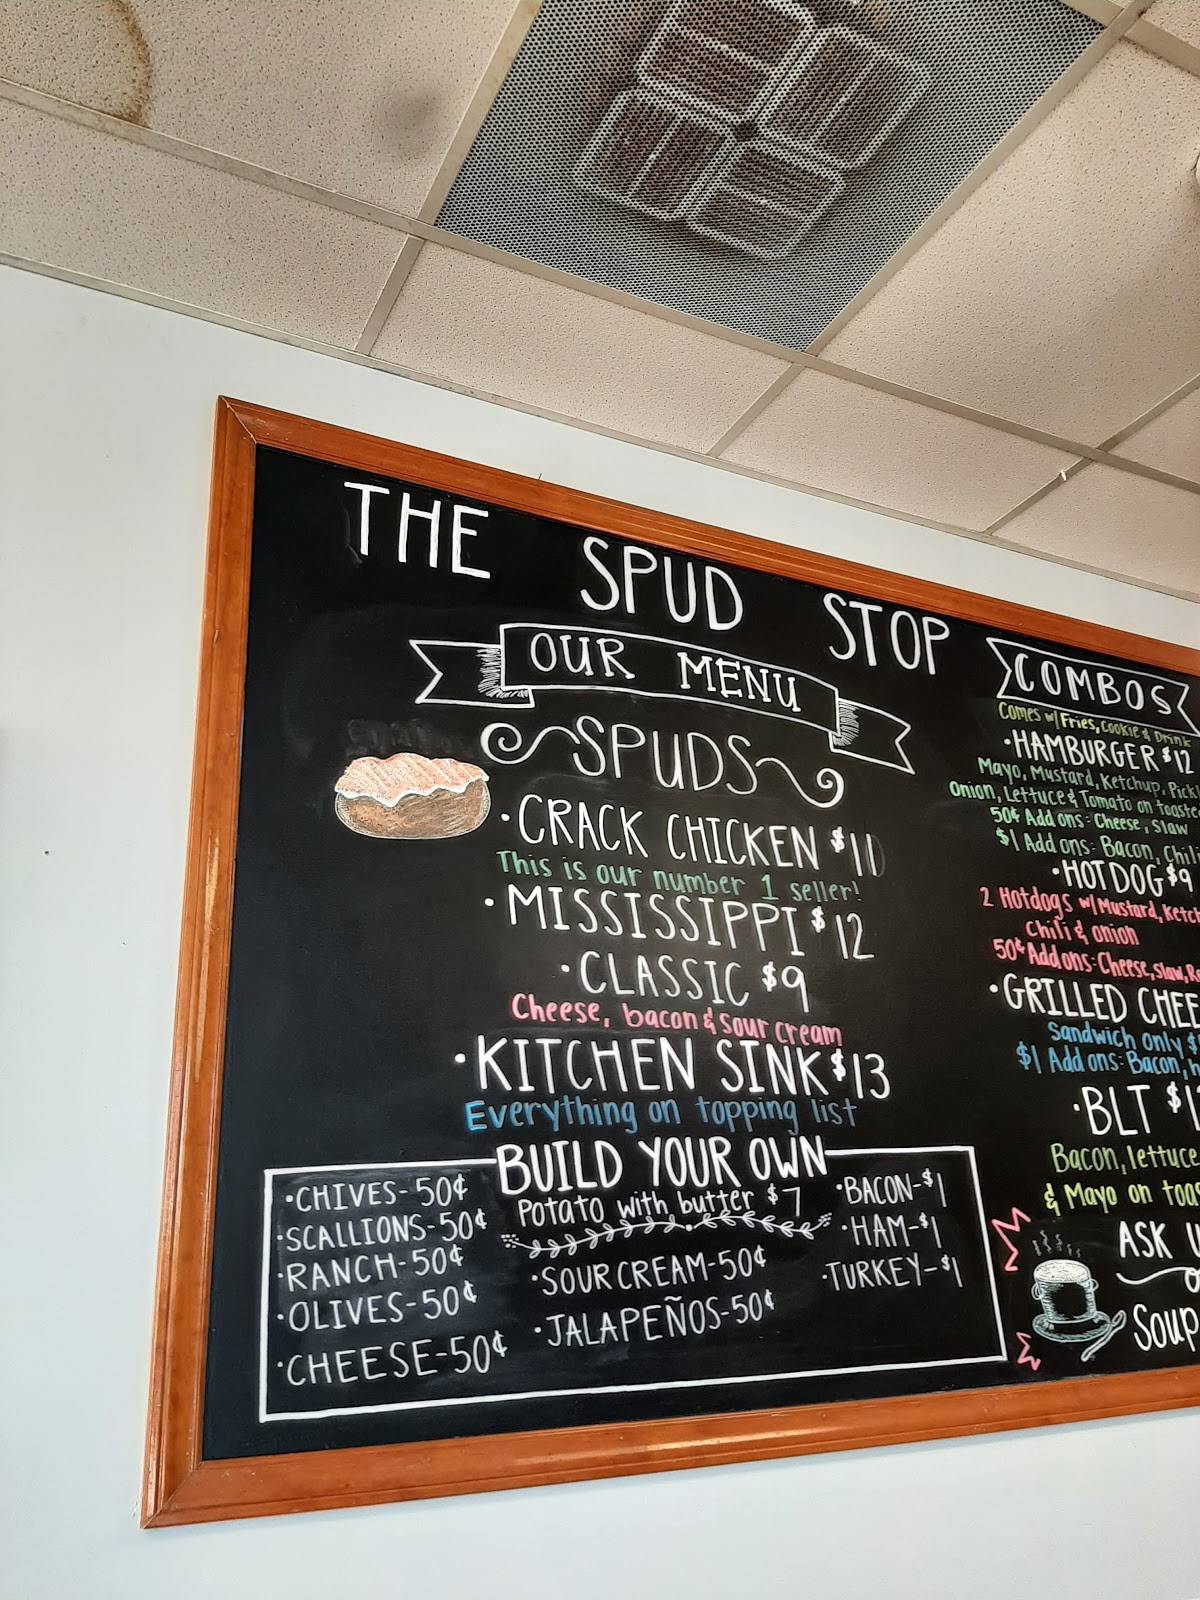 THE SPUD STOP
OUR MENU
SPUDS
·CRACK CHICKEN $11
This is our number 1 seller!
·MISSISSIPPI $12
·CLASSIC $9
Cheese, bacon & sour cream
·KITCHEN SINK $13
Everything on topping list
BUILD YOUR OWN
Potato with butter $7
·CHIVES-50¢
·SCALLIONS-50¢
·RANCH-50¢
·OLIVES-50¢
·CHEESE-50¢
·SOUR CREAM-50¢
·JALAPEÑOS-50¢
·BACON-$1
·HAM-$1
·TURKEY-$1
COMBOS
Comes w/ Fries, Cookie & Drink
·HAMBURGER $12
Mayo, Mustard, Ketchup,
Onion, Lettuce & Tomato on
50¢ Add ons: Cheese, Slaw
$1 Add ons: Bacon,
·HOTDOG $9
2 Hotdogs w/ Mustard,
Chili & onion
50¢ Add ons: Cheese, Slaw,
·GRILLED
Sandwich only
$1 Add ons: Bacon,
·BLT
Bacon, lettuce
& Mayo on
ASK
Soup